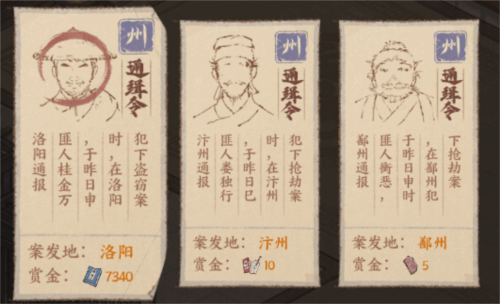 州
通缉令
洛阳通报
匪人桂金万
，于昨日申
时，在洛阳
犯下盗窃案
案发地：洛阳
赏金：7340
州
通缉令
汴州通报
匪人娄独行
，于昨日巳
时，在汴州
犯下抢劫案
案发地：汴州
赏金：10
州
通缉令
鄯州通报
匪人衡恶，
于昨日申时
，在鄯州犯
下抢劫案
案发地：鄯州
赏金：5